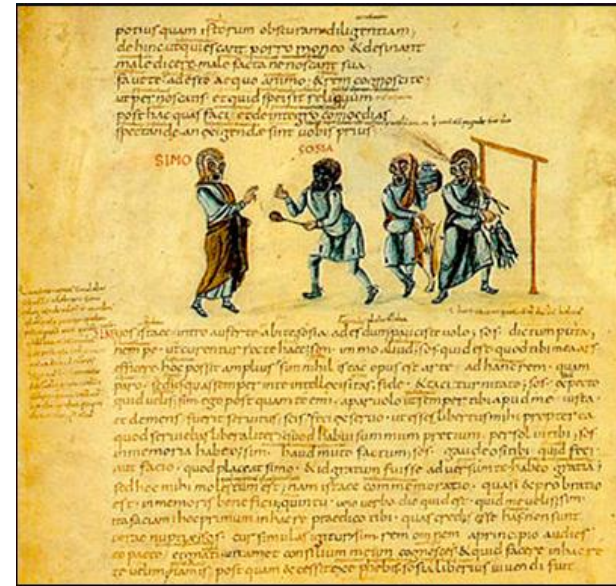 potius quam istorum obscuram diligentiam,
dehinc ut quiescant porro moneo & desinant
male dicere male facta ne noscant sua.
fauete adesto aequo animo. & rem cognoscite.
ut pernoscatis. et quid spei sit reliquum
post hac quas faci& de integro comoedias
spectande an exigendae sint uobis prius.
SIMO SOSIA
uos istaec intro auferte abite sosia ades dum paucis te uolo; sos. dictum puta,
nempe. ut curentur recte haec; sim. immo aliud; sos. quid est quod tibi mea ars
efficere hoc possit amplius; sim nihil istac opus est arte. ad hanc rem quam
paro. sed is quas semper in te intellexi sitas; fide. & taciturnitate; sos. expecto
quid uelis; sim. ego post quam te emi. a paruolo ut semper tibi apud me iusta.
et clemens fuerit seruitus; scis feci e seruo. ut esses libertus mihi propterea
quod seruiebas liberaliter quod habui summum pretium persolui tibi; sos
in memoria habeo; sim. haud muto factum; sos. gaudeo si tibi quid feci
aut facio. quod placeat simo. & id gratum fuisse aduersum te habeo gratiā;
sed hoc mihi molestum est; nam istaec commemoratio. quasi exprobratio
est inmemoris benefici; quin tu uno uerbo dic quid est. quid me uelis; sim.
ita faciam; hoc primum in hac re praedico tibi. quas credis esse has non sunt
uerae nuptiae; sos. cur simulas igitur; sim. rem omnem a principio audies
eo pacto. et gnati uitam et consilium meum cognosces & quid facere in hac re
te uelim; nam is post quam excessit ex ephebis sosia liberius uiuendi fuit